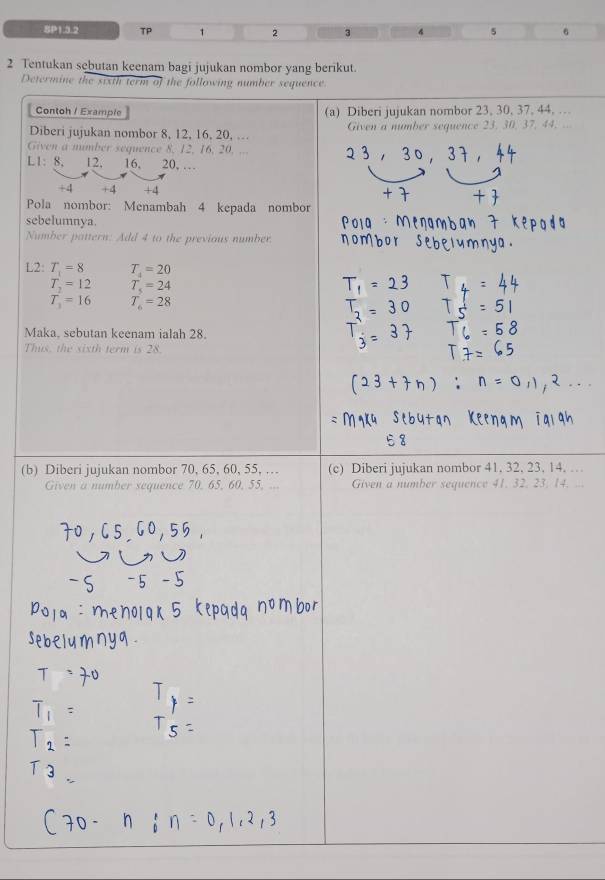 SP1.3.2 TP 1 2 3 4 5 6
2 Tentukan sebutan keenam bagi jujukan nombor yang berikut.
Determine the sixth term of the following number sequence.
Contoh / Example
Diberi jujukan nombor 8, 12, 16, 20, …
Given a number sequence 8, 12, 16, 20, ...
L1: 8, 12, 16, 20, …
+4 +4 +4
Pola nombor: Menambah 4 kepada nombor
sebelumnya.
Number pattern: Add 4 to the previous number.
L2: T₁ = 8 T₄ = 20
T₂ = 12 T₅ = 24
T₃ = 16 T₆ = 28
Maka, sebutan keenam ialah 28.
Thus, the sixth term is 28.
(a) Diberi jujukan nombor 23, 30, 37, 44, …
Given a number sequence 23, 30, 37, 44, ...
23, 30, 37, 44
+7 +7
Pola : Menamban 7 kepada
nombor sebelumnya.
T₁ = 23 T₄ = 44
T₂ = 30 T₅ = 51
T₃ = 37 T₆ = 58
T₇ = 65
(23 + 7n) : n = 0, 1, 2 ...
= maka sebutan keenam ialah
58
(b) Diberi jujukan nombor 70, 65, 60, 55, …
Given a number sequence 70, 65, 60, 55, ...
70, 65, 60, 55,
-5 -5 -5
Pola : menolak 5 kepada nombor
sebelumnya.
T = 70
T₁ =
T₂ =
T₃ =
T₄ =
T₅ =
(70 - n : n = 0, 1, 2, 3
(c) Diberi jujukan nombor 41, 32, 23, 14, …
Given a number sequence 41, 32, 23, 14, ...